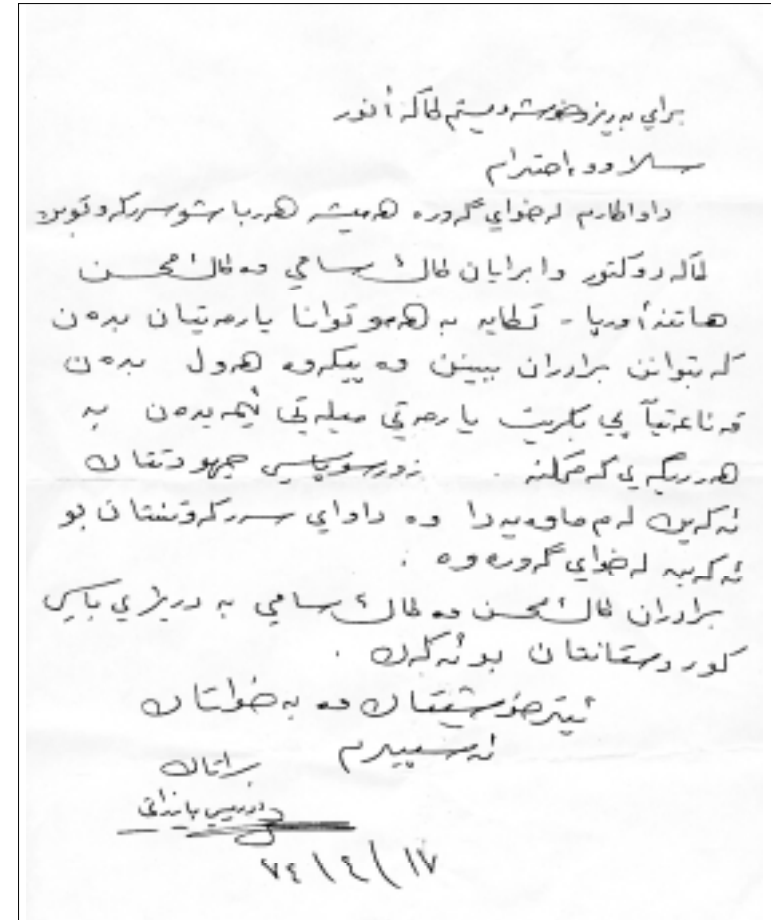 براي به ريز و خوشه ويستم كاكه أنور
سلاو و احترام
داواكارم له خواي گه وره هه ميشه هه ر باش و سه ركه و توبن
كاكه دوكتور وا برايان كاك سامي وه كاك محسن
هاتنه أوربا - تكايه به هه مو توانا يارمه تيان بده ن
كه بتوانن برادران ببينن وه پيكه وه هه ول بده ن
قه ناعه تيان پي بكريت يارمه تي ميله تي ئيمه بده ن به
هه ر ريگه يي كه ممكنه . زور سوپاسي جهودتان
ئه كرين له م ماوه يه دا وه داواي سه ركه وتنتان بو
ئه كه ين له خواي گه وره وه .
برادران كاك محسن وه كاك سامي به دريژي باسي
كوردستانتان بو ئه كه ن .
ئيتر خوشيتان وه به خواتان
ئه سپيرم
براتان
ادريس بارزاني
٧٤/٤/١٧